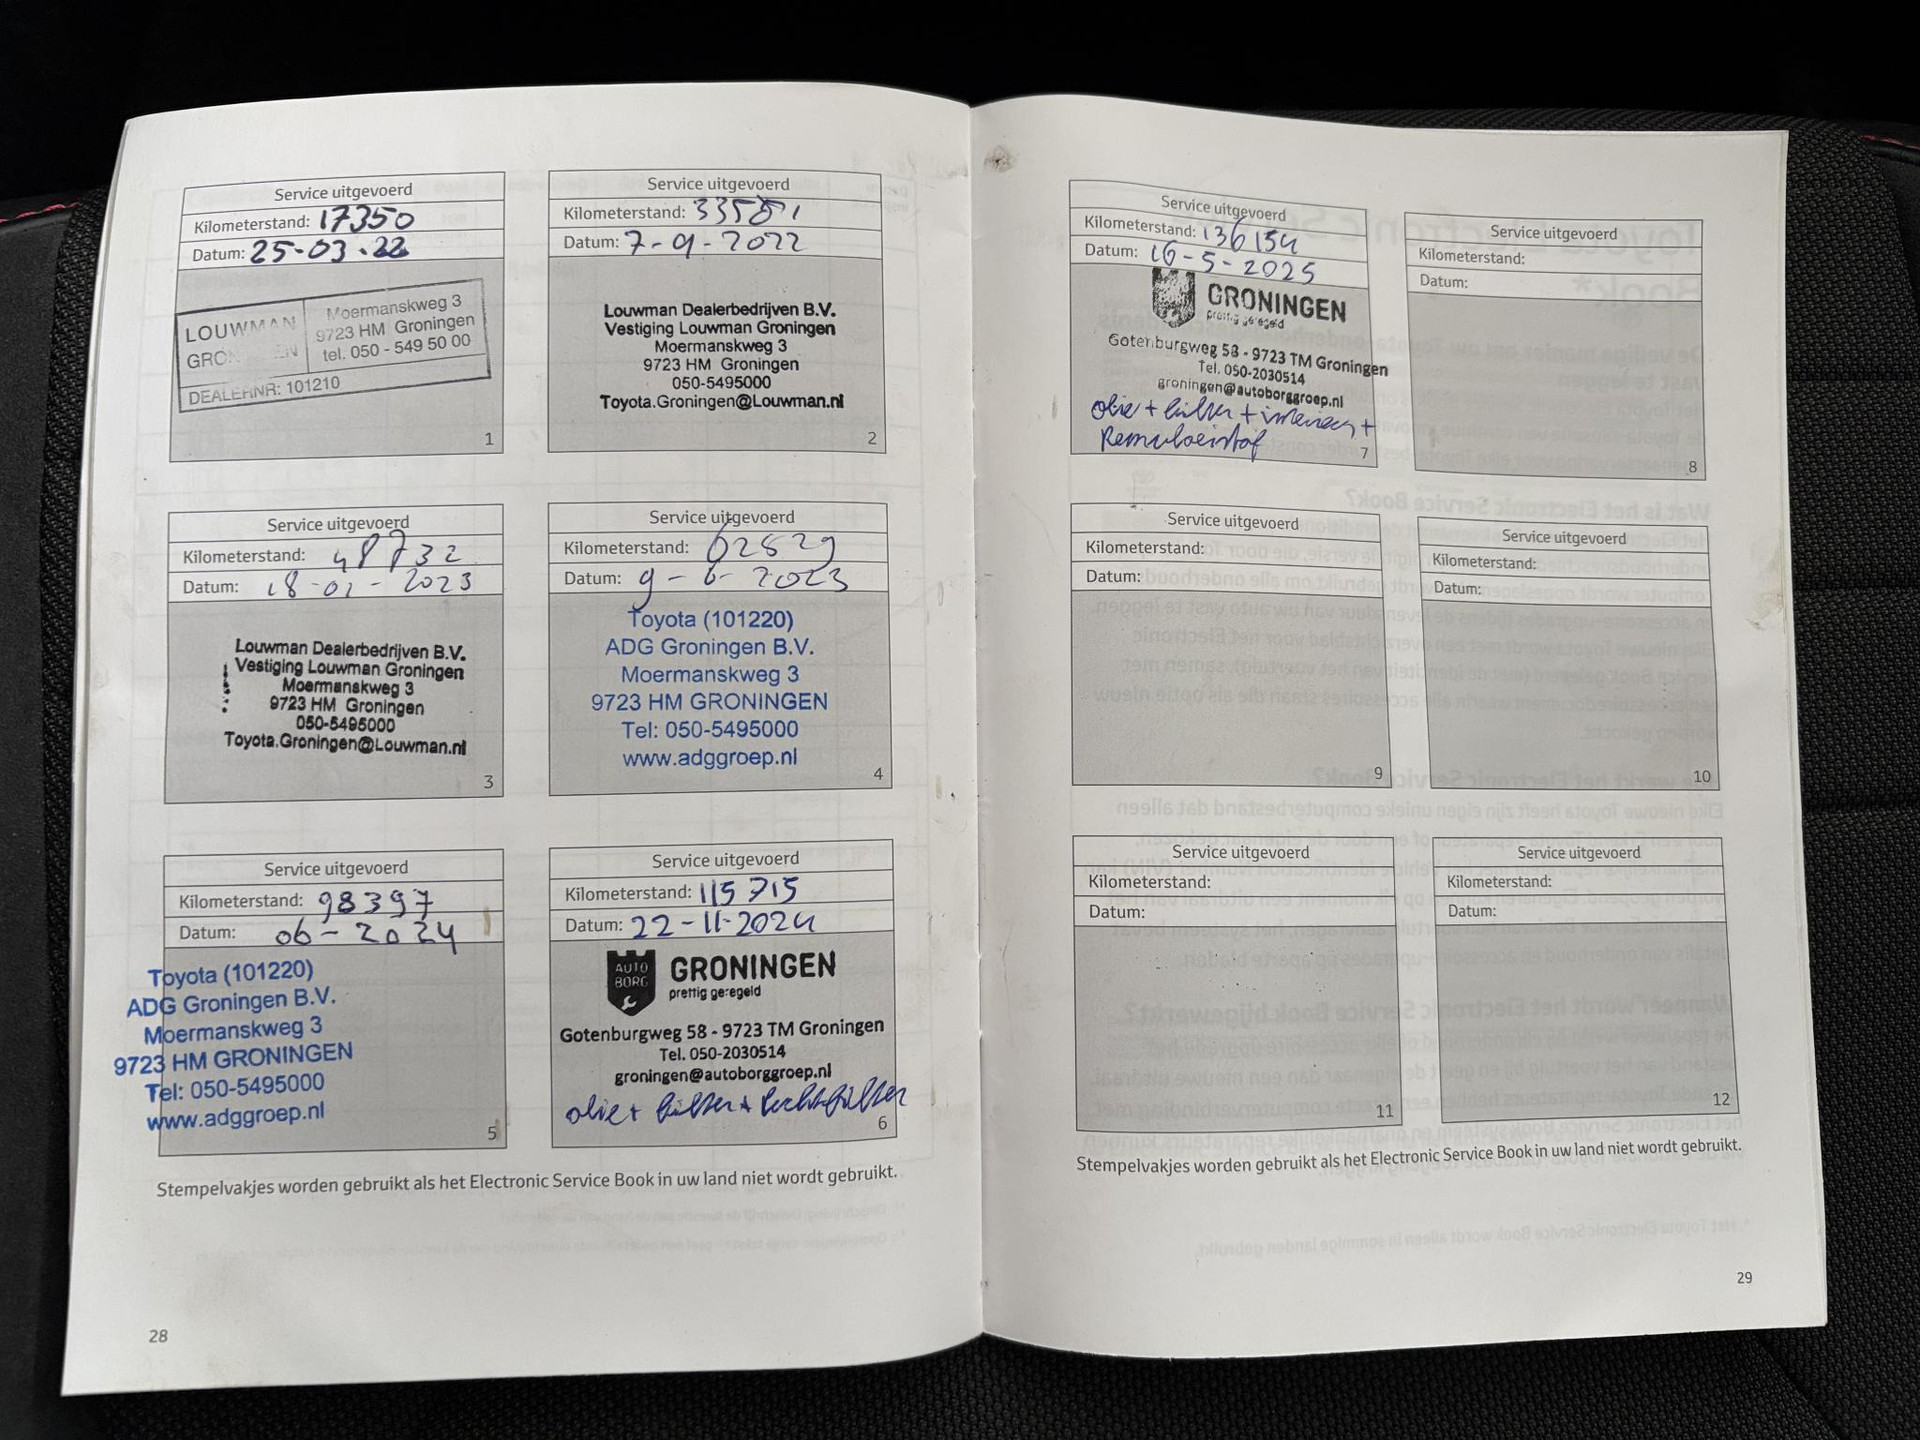 Service uitgevoerd
Kilometerstand: 17350
Datum: 25-03-22
LOUWMAN
Moermanskweg 3
9723 HM Groningen
tel. 050 - 549 50 00
DEALERNR: 101210
1
Service uitgevoerd
Kilometerstand:
Datum: 7-9-2022
Louwman Dealerbedrijven B.V.
Vestiging Louwman Groningen
Moermanskweg 3
9723 HM Groningen
050-5495000
Toyota.Groningen@Louwman.nl
2
Service uitgevoerd
Kilometerstand: 48732
Datum: 18-01-2023
Louwman Dealerbedrijven B.V.
Vestiging Louwman Groningen
Moermanskweg 3
9723 HM Groningen
050-5495000
Toyota.Groningen@Louwman.nl
3
Service uitgevoerd
Kilometerstand: 62829
Datum: 9-6-2023
Toyota (101220)
ADG Groningen B.V.
Moermanskweg 3
9723 HM GRONINGEN
Tel: 050-5495000
www.adggroep.nl
4
Service uitgevoerd
Kilometerstand: 98397
Datum: 06-2024
Toyota (101220)
ADG Groningen B.V.
Moermanskweg 3
9723 HM GRONINGEN
Tel: 050-5495000
www.adggroep.nl
5
Service uitgevoerd
Kilometerstand: 115715
Datum: 22-11-2024
AUTO BORG
GRONINGEN
prettig geregeld
Gotenburgweg 58 - 9723 TM Groningen
Tel. 050-2030514
groningen@autoborggroep.nl
olie + filter + luchtfilter
6
Stempelvakjes worden gebruikt als het Electronic Service Book in uw land niet wordt gebruikt.
28
Service uitgevoerd
Kilometerstand: 136154
Datum: 16-5-2025
GRONINGEN
prettig geregeld
Gotenburgweg 58 - 9723 TM Groningen
Tel. 050-2030514
groningen@autoborggroep.nl
olie + filter + interieur +
Remvloeistof
7
Service uitgevoerd
Kilometerstand:
Datum:
8
Service uitgevoerd
Kilometerstand:
Datum:
9
Service uitgevoerd
Kilometerstand:
Datum:
10
Service uitgevoerd
Kilometerstand:
Datum:
11
Service uitgevoerd
Kilometerstand:
Datum:
12
Stempelvakjes worden gebruikt als het Electronic Service Book in uw land niet wordt gebruikt.
29